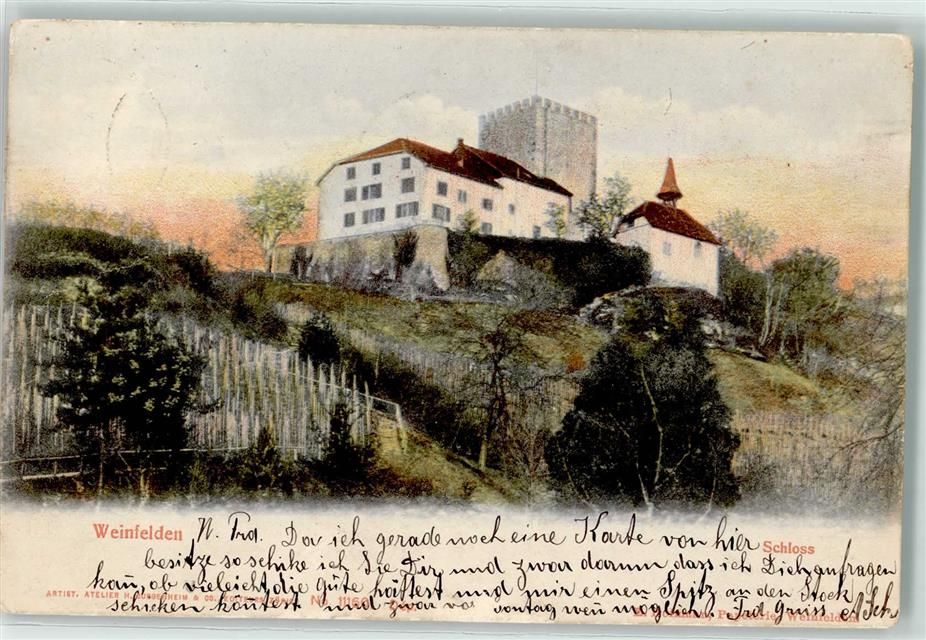 Weinfelden
Schloss
N. Frd. Da ich gerade noch eine Karte von hier
besitze so schike ich Sie Dir, und zwar darum dass ich Dich anfragen
kan, ob vieleicht die Güte hättest und mir einen Spitz an den Stock
schicken köntest und zwar vor Sontag wen möglich. Frd. Gruss A Sch
ARTIST. ATELIER H. GUGGENHEIM & CO.
No. 1116
Papeterie, Weinfelden